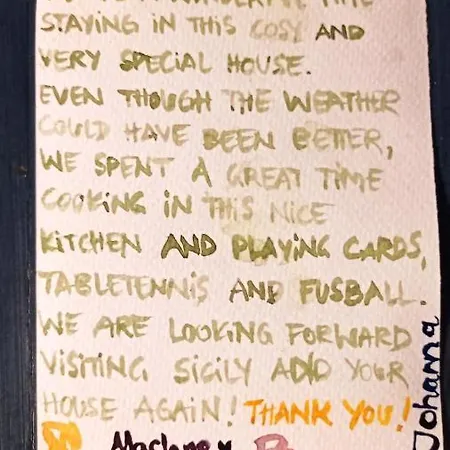 TIME
STAYING IN THIS COSY AND
VERY SPECIAL HOUSE.
EVEN THOUGH THE WEATHER
COULD HAVE BEEN BETTER,
WE SPENT A GREAT TIME
COOKING IN THIS NICE
KITCHEN AND PLAYING CARDS,
TABLETENNIS AND FUSBALL.
WE ARE LOOKING FORWARD
VISITING SICILY AND YOUR
HOUSE AGAIN! THANK YOU!
Johanna